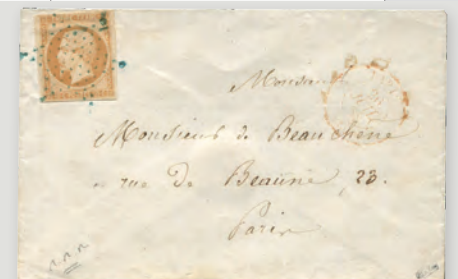 Monsieur
Monsieur de Beauchêne
rue De Beaune 23.
Paris